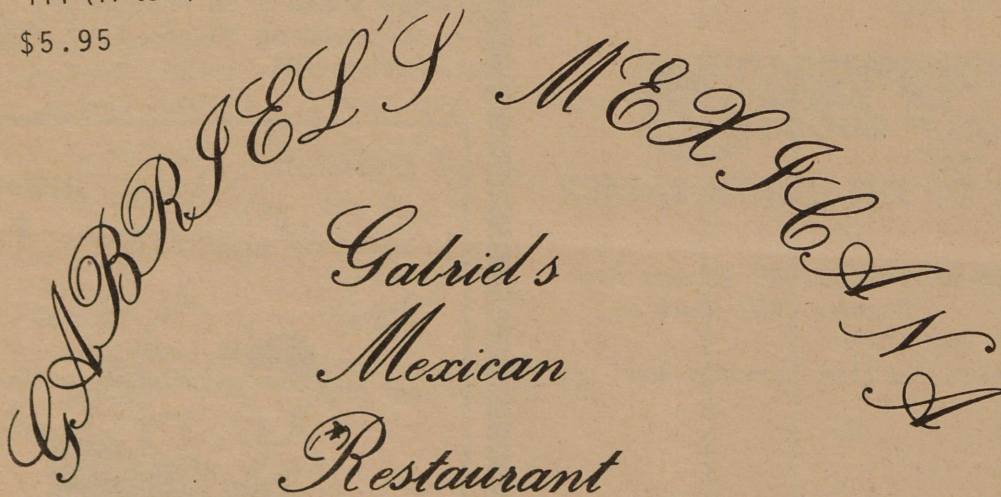 $5.95
GABRIEL'S MEXICANA
Gabriel s
Mexican
Restaurant